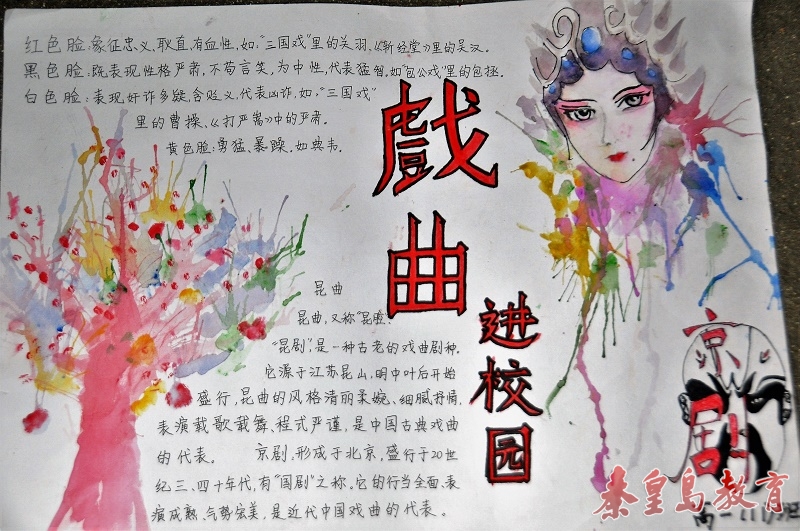 红色脸:象征忠义,耿直,有血性,如:“三国戏”里的关羽,《斩经堂》里的吴汉。
黑色脸:既表现性格严肃,不苟言笑,为中性,代表猛智,如“包公戏”里的包拯。
白色脸:表现奸诈多疑,含贬义,代表凶诈,如:“三国戏”
里的曹操、《打严嵩》中的严肃。
黄色脸:勇猛、暴躁,如典韦。
戲曲
进校园
昆曲
昆曲,又称“昆腔、
“昆剧”,是一种古老的戏曲剧种。
它源于江苏昆山,明中叶后开始
盛行,昆曲的风格清丽柔婉、细腻抒情,
表演载歌载舞,程式严谨,是中国古典戏曲
的代表。 京剧,形成于北京,盛行于20世
纪三、四十年代,有“国剧”之称。它的行当全面、表
演成熟、气势宏美,是近代中国戏曲的代表。
京剧
秦皇岛教育